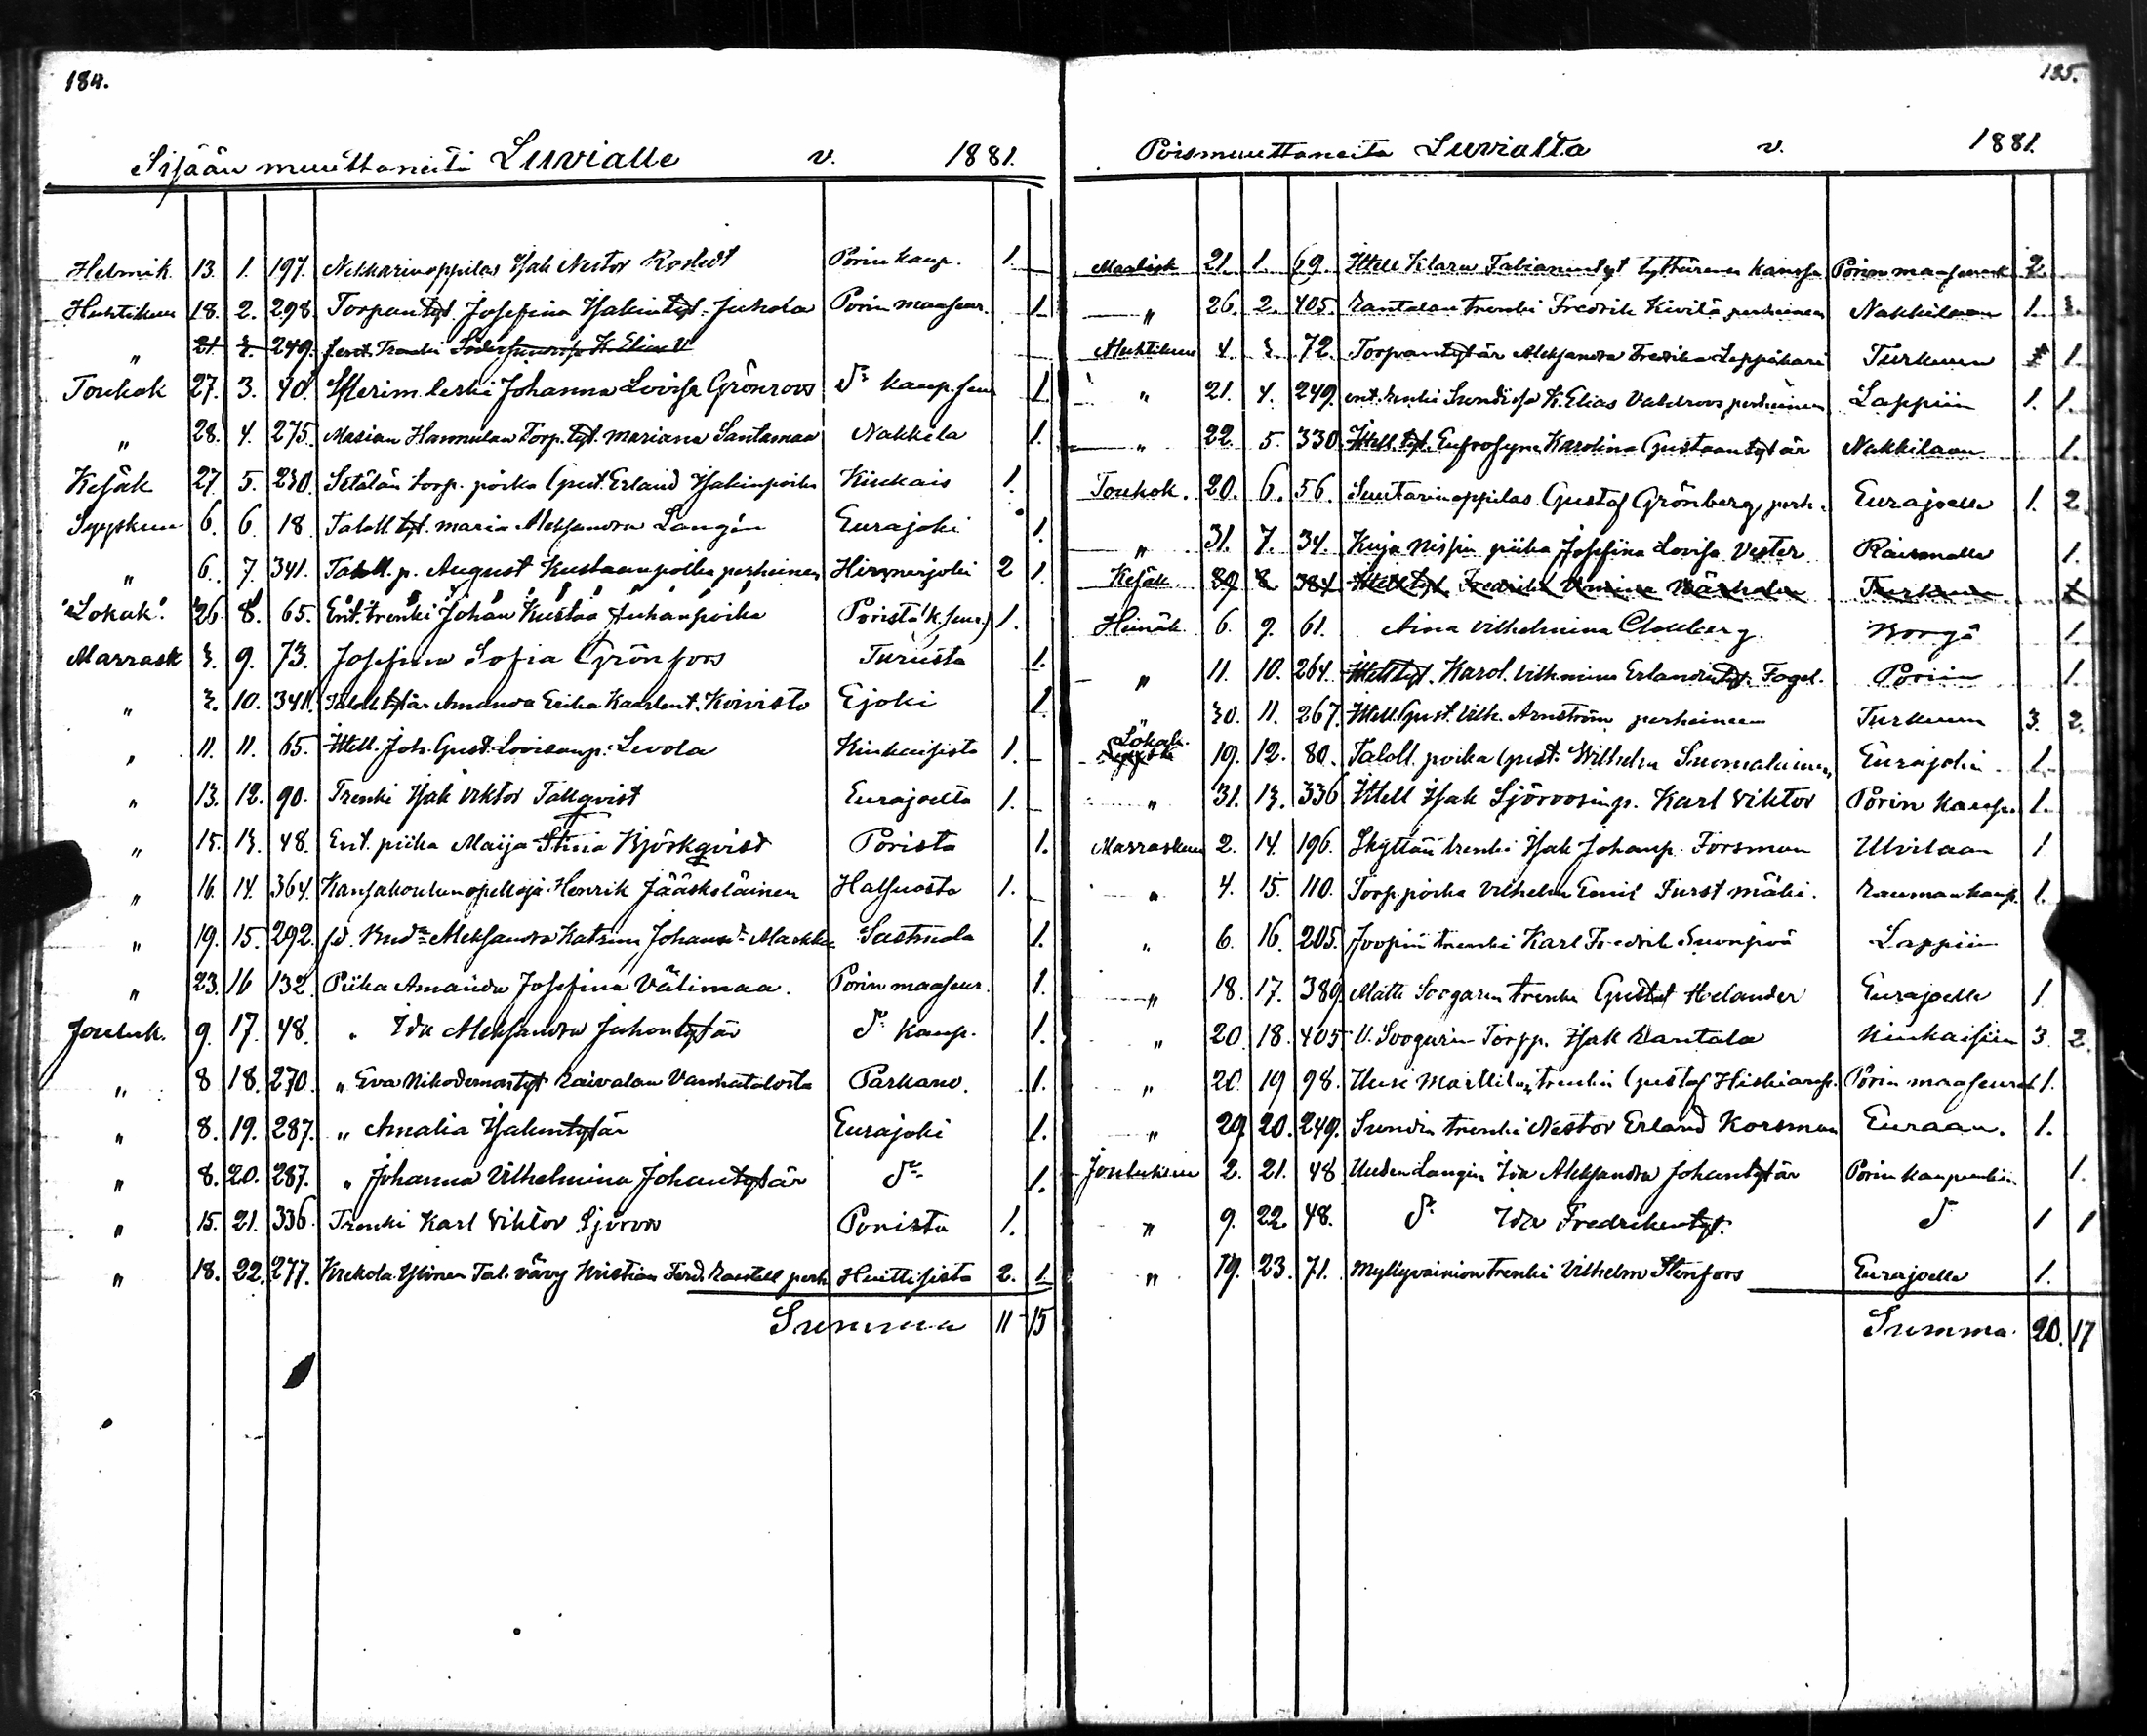 184.
Sisään muuttaneita Luvialle v. 1881.
Helmik. 13. 1. 197. Nekkarinoppilas Isak Nestor Rosledt Porin kaup. 1.
Huhtikuu 18. 2. 298. Torpantyt. Josefina Isakintyt. Juhola Porin maaseur. 1.
" 21. 3. 249. Trenki K. Elias V
Toukok 27. 3. 40. leski Johanna Lovisa Grönroos do kaup. seu 1.
" 28. 4. 275. Masian Hannulan Torp. tyt. Mariana Santamaa Nakkila 1.
Kesäk 27. 5. 230. Setälän torp. poika Gust. Erland Isakinpoika Kiukais 1.
Syyskuu 6. 6. 18. Taloll. tyt. Maria Aleksandra Langén Eurajoki 1.
" 6. 7. 341. Taloll. p. August Kustaanpoika perheineen Hinnerjoki 2 1.
Lokak. 26. 8. 65. Ent. trenki Johan Kustaa Juhanpoika Porista (k. seur.) 1.
Marrask 3. 9. 73. Josefina Sofia Grönfors Turusta 1.
" 3. 10. 341. Taloll. tytär Amanda Erika Kaarlent. Koivisto Ejoki 1.
" 11. 11. 65. Ittell. Joh. Gust. Lovisanp. Levola Kiukaisista 1.
" 13. 12. 90. Trenki Isak Viktor Tallqvist Eurajoelta 1.
" 15. 13. 48. Ent. piika Maija Stina Björkqvist Porista 1.
" 16. 14. 364. Kansakoulunopettaja Henrik Jääskeläinen Halsuasta 1.
" 19. 15. 292. Aleksandra Katrina Johansdr Markka Sastmola 1.
" 23. 16 132. Piika Amanda Josefina Välimaa. Porin maaseur. 1.
Jouluk. 9. 17. 48. " Ida Aleksandra Juhontytär do kaup. 1.
" 8 18. 270. " Eva Nikodemustyt Raivalan Vanhatalosta Parkano. 1.
" 8. 19. 287. " Amalia Isakintytär Eurajoki 1.
" 8. 20. 287. " Johanna Vilhelmina Johantytär do 1.
" 15. 21. 336. Trenki Karl Viktor Sjöroos Porista 1.
" 18. 22. 277. Krekola Ylinen Tal. vävy Kristian Ferd. perh Huittisista 2. 1.
Summa 11 15
185.
Poismuuttaneita Luvialta v. 1881.
Maalisk 21. 1. 69. Ittell Klara Fabianintyt tyttärensä kanssa Porin maaseurak 2.
" 26. 2. 405. Rantalan trenki Fredrik Kivilä perheineen Nakkilaan 1. 3.
Huhtikuu 4. 3 72. Torpantytär Aleksandra Fredrika Leppäkari Turkuun 1.
" 21. 4. 249. ent. trenki K. Elias perheineen Lappiin 1. 1.
" 22. 5. 330. Ittell. tyt. Eufrosyne Karolina Gustaantytär Nakkilaan 1.
Toukok. 20. 6. 56. Suutarinoppilas Gustaf Grönberg, perh. Eurajoelle 1. 2.
" 31. 7. 34. Kuja Nissin piika Josefina Lovisa Vester Raumalle 1.
Kesäk. 8 384 Fredrika Turkuun
Heinäk. 6. 9. 61. Aina Vilhelmina Borgå 1.
" 11. 10. 264. Ittell tyt. Karol. Vilhmina Erlandintyt. Fogel. Poriin 1.
30. 11. 267. Ittell. Gust. Vilh. Arnström perheineen Turkuun 3. 2.
Lokak. 19. 12. 80. Taloll. poika Gust. Wilhelm Suomalainen Eurajokin 1.
" 31. 13. 336 Ittell Isak Sjöroosinp. Karl Viktor Porin kaup. 1.
Marraskuu 2. 14. 196. Skyttän trenki Isak Johanp. Forsman Ulvilaan 1
" 4. 15. 110. Torp poika Vilhelm Emil Furst mäki. Rauman kaup. 1.
" 6. 16. 205. trenki Karl Fredrik Lappiin
" 18. 17. 389. Matti Soogarin trenki Gustaf Helander Eurajoelle 1.
" 20. 18. 405. U. Soogarin Torpp. Isak Rantala Kiukaisiin 3. 2.
" 20. 19 98. Uusi Marttilan trenki Gustaf Hiskiaanp. Porin maaseurak 1.
" 29. 20. 249. Sundin trenki Nestor Erland Korsman Euraan. 1.
Joulukuu 2. 21. 48 Uuden Langin Ida Aleksandra Johantytär Porin kaupunkiin 1.
" 9. 22. 48. do Ida Fredrikintyt. do 1 1
" 19. 23. 71. Myllyvainion trenki Vilhelm Stenfors Eurajoelle 1.
Summa 20. 17